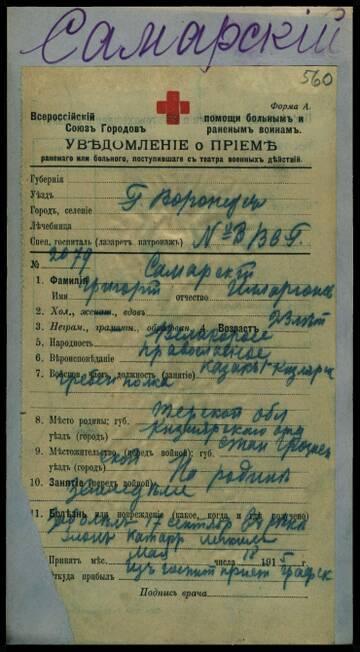 Самарскій
560
Форма А.
Всероссійскій Союз Городов
помощи больным и раненым воинам.
УВѢДОМЛЕНІЕ о ПРІЕМѢ
раненаго или больного, поступившаго с театра военных дѣйствій.
Губернія
Уѣзд
Город, селеніе Г Воронеж
Лѣчебница
Спец. госпиталь (лазарет, патронаж) № ВВГ.
№ 2079
1. Фамилія Самарскій
Имя Григорій отчество
2. Хол., женат, вдов.
3. Неграм., грамотн., образован. 4. Возраст 23 лѣт
5. Народность Великоросс
6. Вѣроисповѣданіе Православное
7. Войсков. часть, должность (занятіе) казак Кизляро
гребен полка
8. Мѣсто родины; губ. Терской обл
уѣзд (город) Кизлярскаго
9. Мѣстожительство (перед войной); губ. стан
уѣзд (город)
10. Занятіе (перед войной) На родинѣ
земледѣліе
11. Болѣзнь или поврежденіе (какое, когда и гдѣ получено)
17 сентябр
катарр
Принят мѣс. май числа 18 1915
Откуда прибыл из госпит
Подпись врача